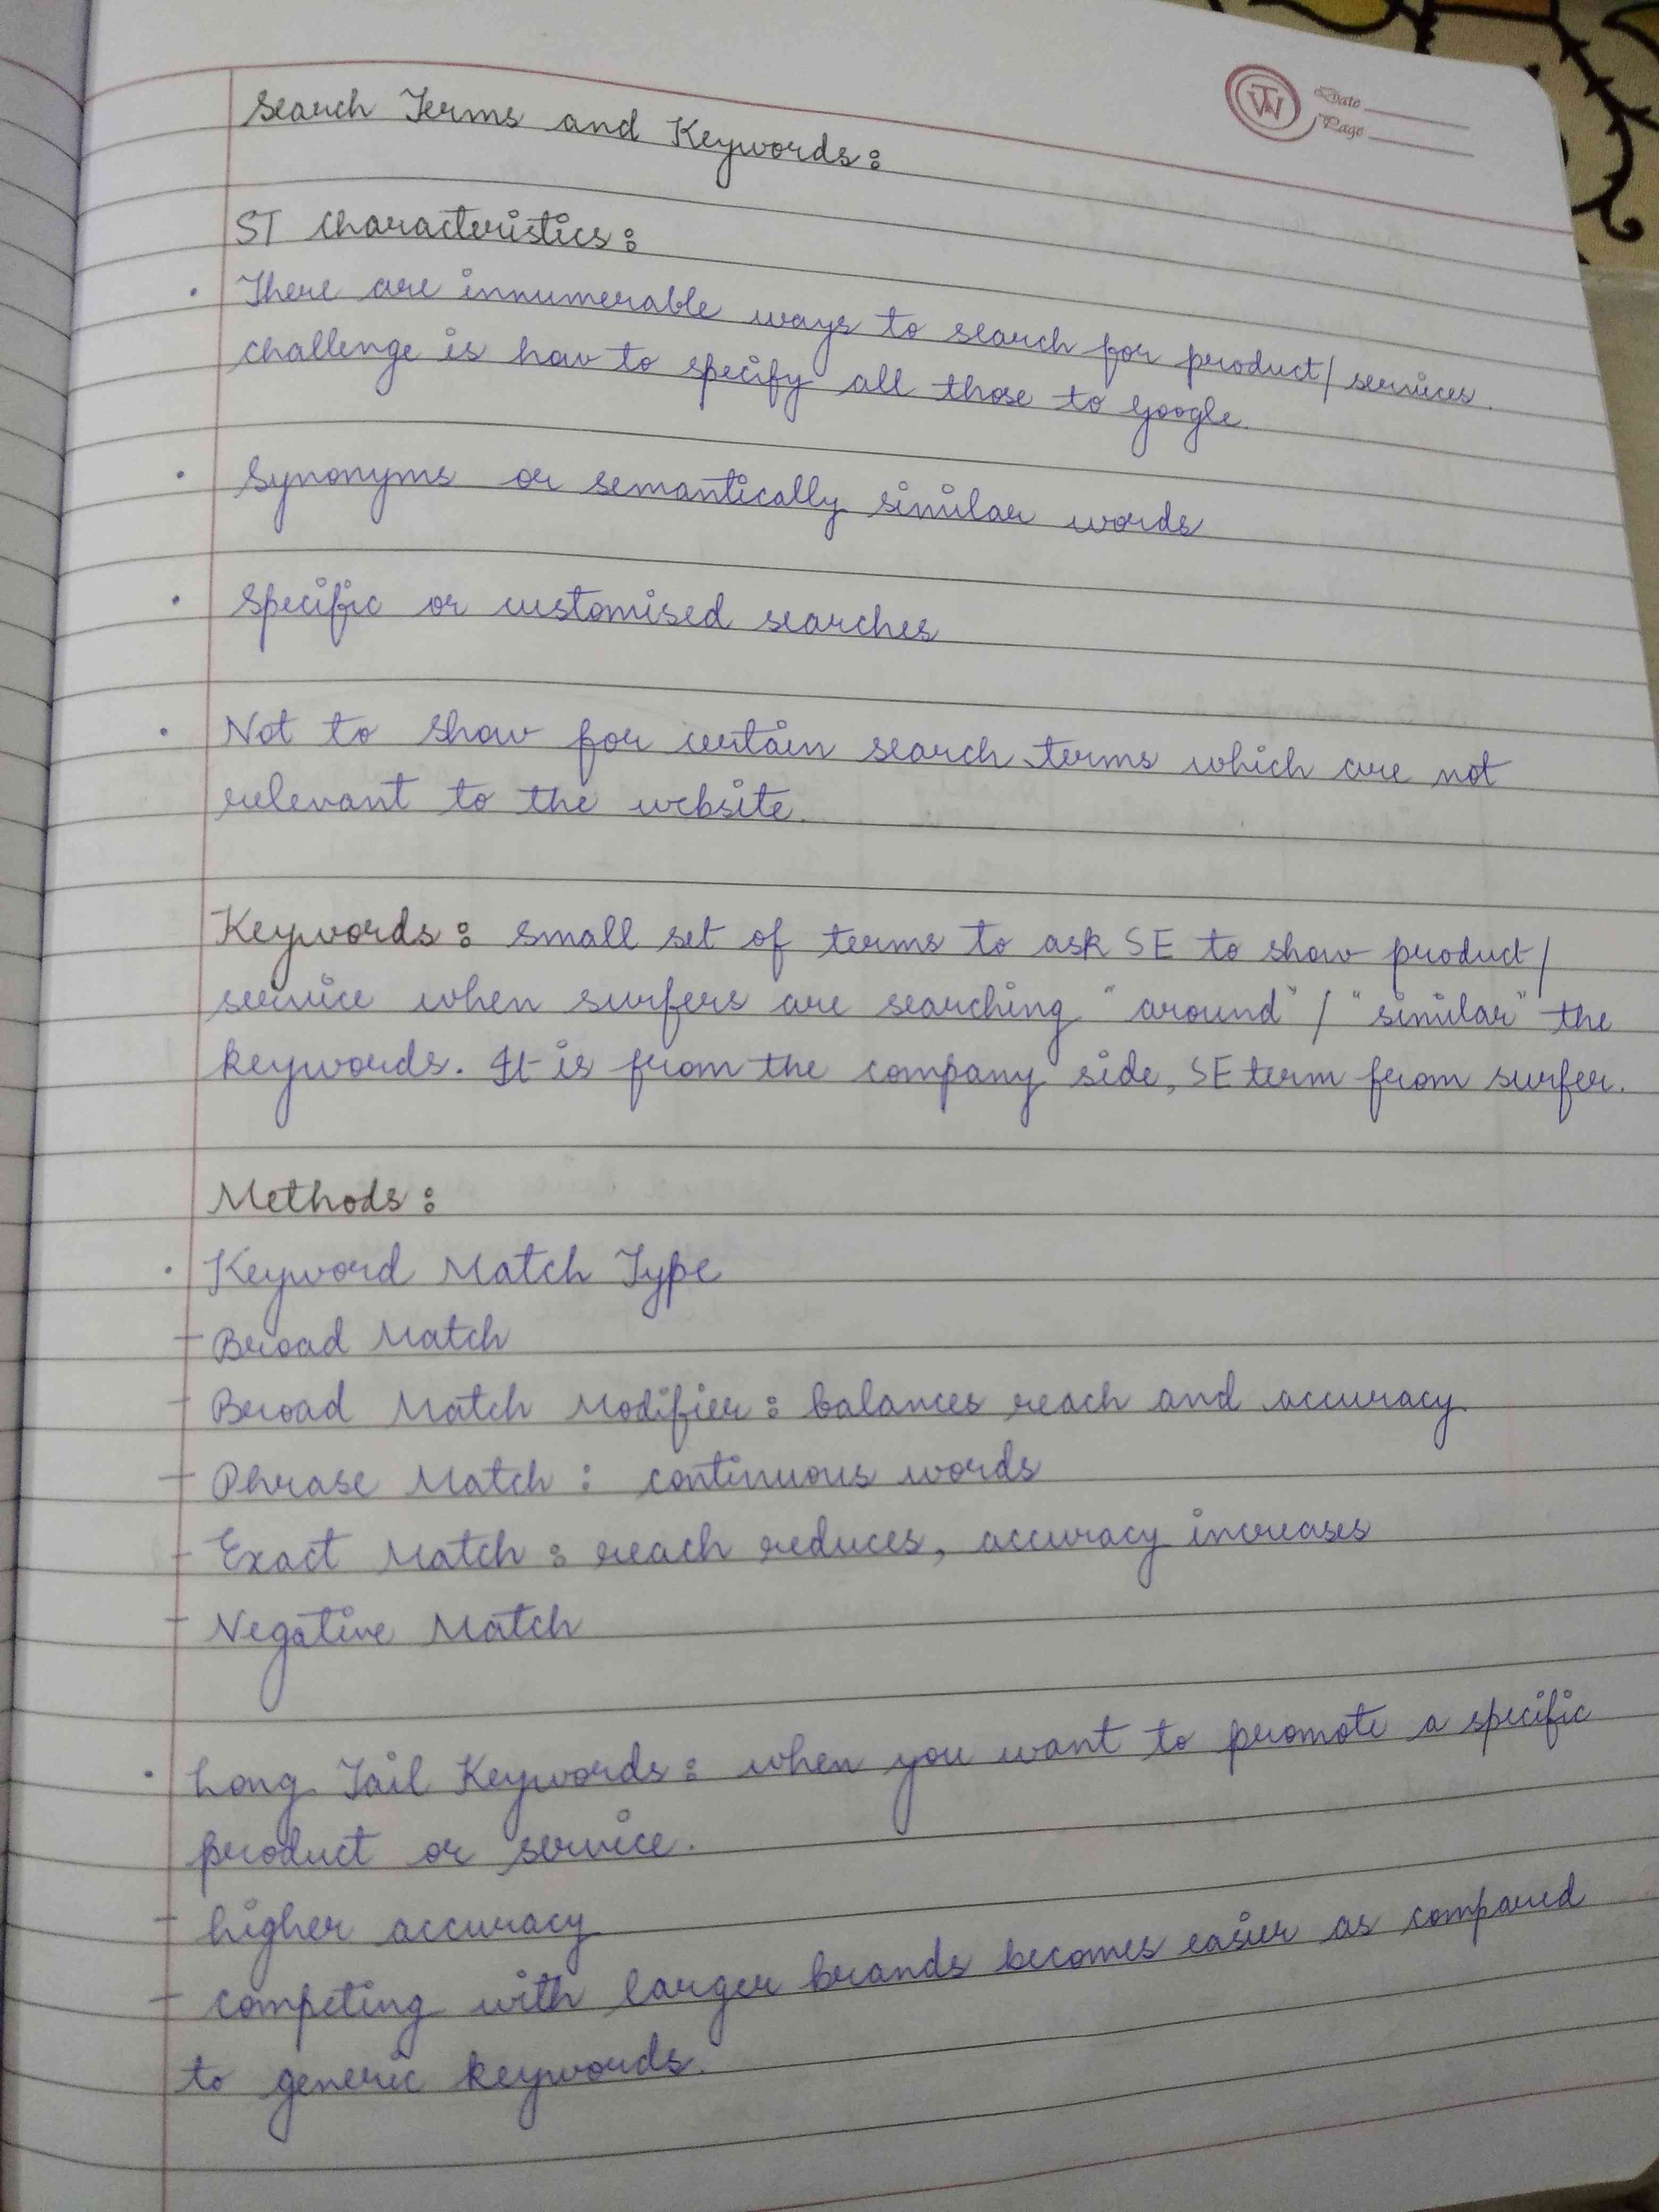 Date
Page
Search Terms and Keywords:
ST Characteristics:
• There are innumerable ways to search for product/services.
challenge is how to specify all those to google.
• Synonyms or semantically similar words
• Specific or customised searches
• Not to show for certain search terms which are not
relevant to the website.
Keywords: small set of terms to ask SE to show product/
service when surfers are searching "around" / "similar" the
keywords. It is from the company side, SE term from surfer.
Methods:
• Keyword Match Type
- Broad Match
- Broad Match Modifier: balances reach and accuracy
- Phrase Match: continuous words
- Exact Match: reach reduces, accuracy increases
- Negative Match
• Long Tail Keywords: when you want to promote a specific
product or service.
- higher accuracy
- competing with larger brands becomes easier as compared
to generic keywords.